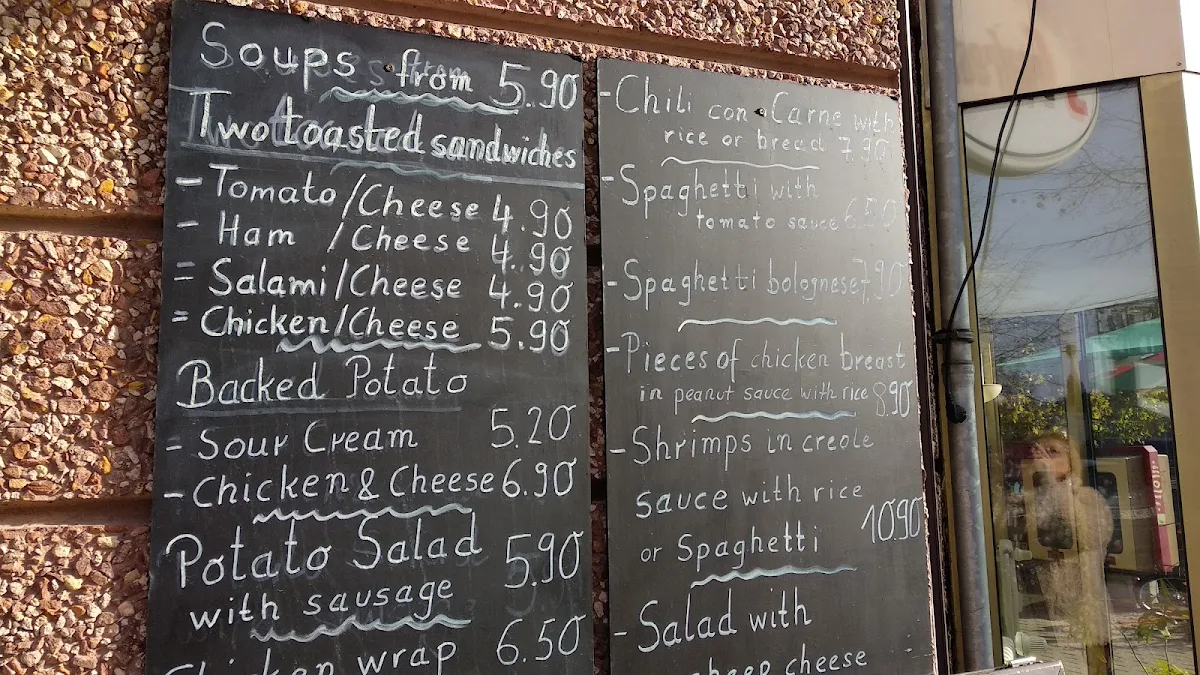 Soups from 5.90
Two toasted sandwiches
- Tomato/Cheese 4.90
- Ham /Cheese 4.90
= Salami/Cheese 4.90
= Chicken/Cheese 5.90
Backed Potato
= Sour Cream 5.20
- Chicken & Cheese 6.90
Potato Salad 5.90
with sausage
Chicken wrap 6.50
- Chili con Carne with
rice or bread 7.90
- Spaghetti with
tomato sauce 6.50
- Spaghetti bolognese 7,90
- Pieces of chicken breast
in peanut sauce with rice 8.90
- Shrimps in creole
sauce with rice
or Spaghetti 10.90
- Salad with
sheep cheese